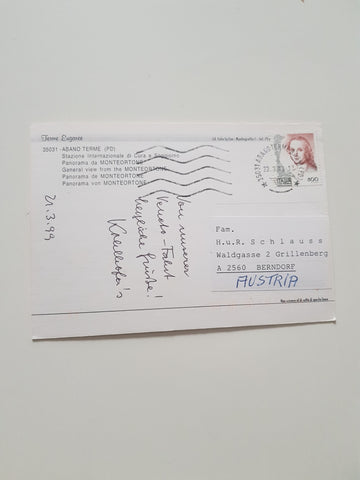 Terme Euganee
35031 - ABANO TERME (PD)
Stazione Internazionale di Cura e Soggiorno
Panorama da MONTEORTONE
General view from the MONTEORTONE
Panorama de MONTEORTONE
Panorama von MONTEORTONE
21.3.99
Von unserer
Veneto-Fahrt
herzliche Grüsse!
ITALIA
800
Fam.
H.u.R. Schlauss
Waldgasse 2 Grillenberg
A 2560 BERNDORF
AUSTRIA